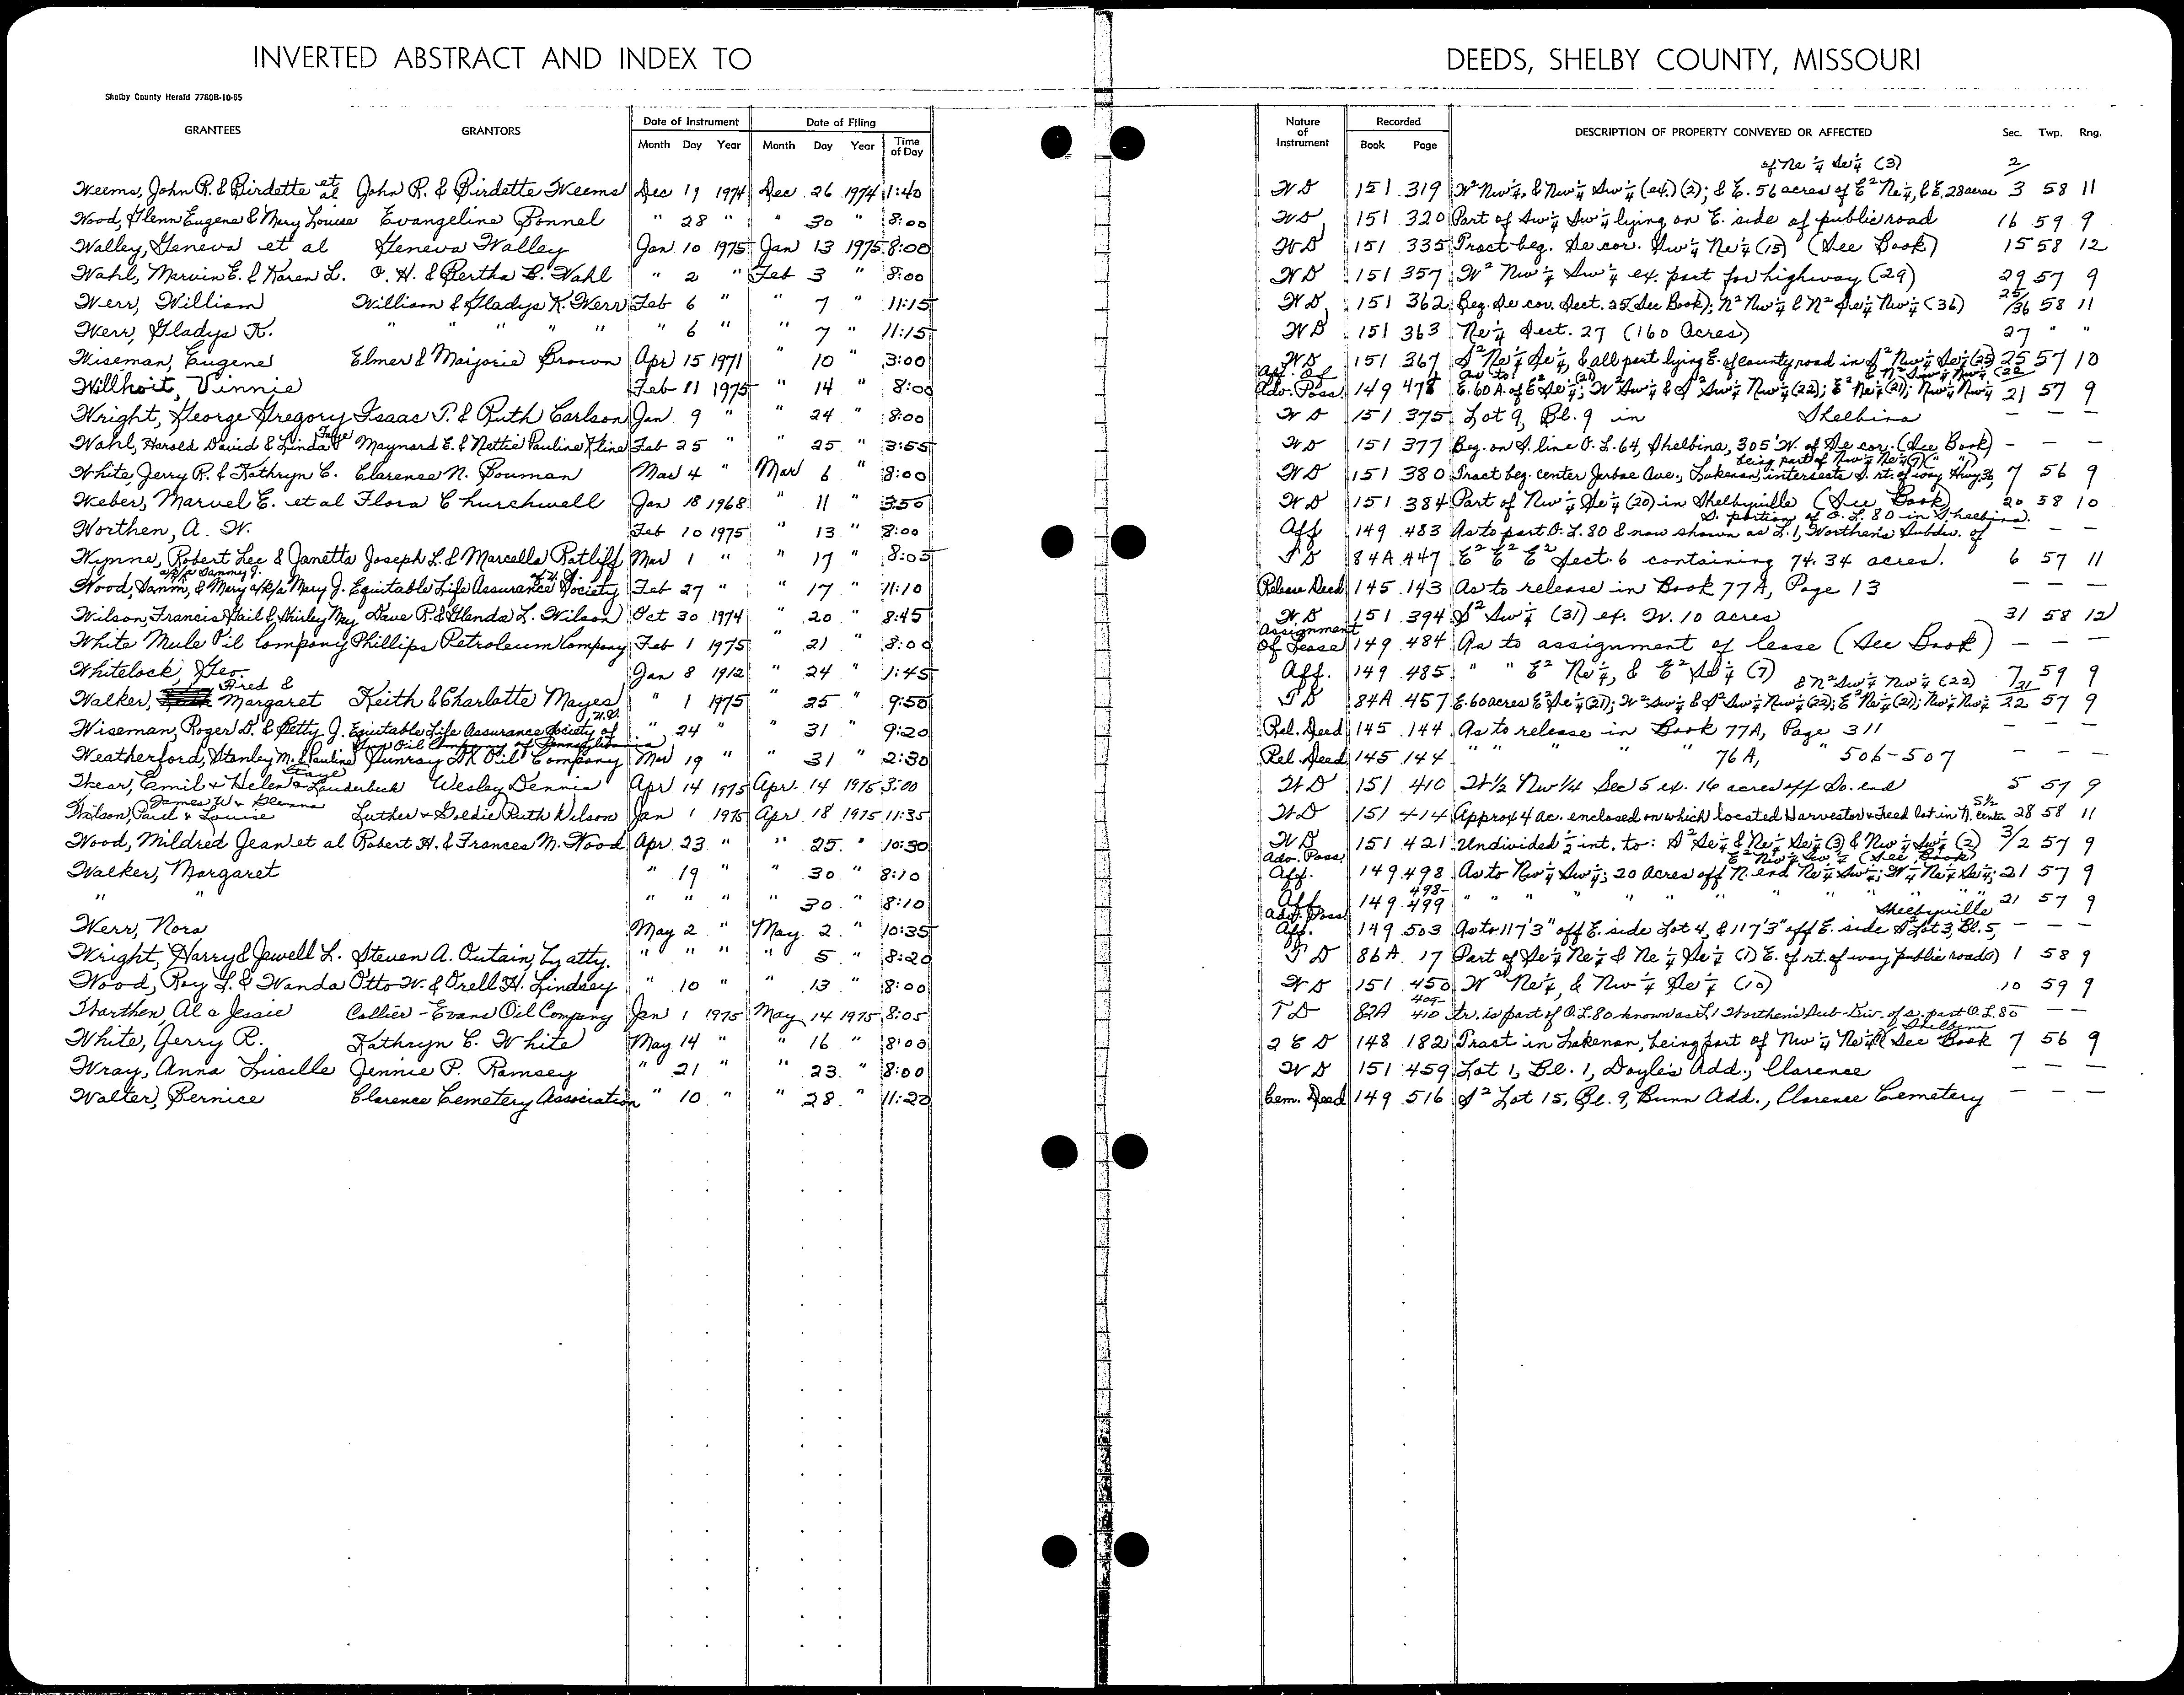 INVERTED ABSTRACT AND INDEX TO DEEDS, SHELBY COUNTY, MISSOURI
Shelby County Herald 7780B-10-65
GRANTEES GRANTORS Date of Instrument Date of Filing Nature of Instrument Recorded DESCRIPTION OF PROPERTY CONVEYED OR AFFECTED Sec. Twp. Rng.
Month Day Year Month Day Year Time of Day Book Page
of Ne 1/4 Se 1/4 (3) 2/
Weems, John R. & Birdette et al John R. & Birdette Weems Dec 19 1974 Dec 26 1974 1:40 WD 151 319 W² Nw 1/4, & Nw 1/4 Sw 1/4 (ex.) (2); & E. 56 acres of E² Ne 1/4, & E. 28 acres 3 58 11
Wood, Glenn Eugene & Mary Louise Evangeline Bonnel " 28 " " 30 " 8:00 WD 151 320 Part of Sw 1/4 Sw 1/4 lying on E. side of public road 16 59 9
Walley, Geneva et al Geneva Walley Jan 10 1975 Jan 13 1975 8:00 WD 151 335 Tract beg. Se cor. Sw 1/4 Ne 1/4 (15) (See Book) 15 58 12
Wahl, Marvin E. & Karen L. O. H. & Bertha B. Wahl " 2 " Feb 3 " 8:00 WD 151 357 W² Nw 1/4 Sw 1/4 ex. part for highway (29) 29 57 9
Werr, William William & Gladys K. Werr Feb 6 " " 7 " 11:15 WD 151 362 Beg. Se cor. Sect. 25 (See Book); N² Nw 1/4 & N² Se 1/4 Nw 1/4 (36) 25/36 58 11
Werr, Gladys K. " " " " " " 6 " " 7 " 11:15 WD 151 363 Ne 1/4 Sect. 27 (160 Acres) 27 " "
Wiseman, Eugene Elmer & Marjorie Brown Apr 15 1971 " 10 " 3:00 WD 151 367 S² Ne 1/4 Se 1/4, & all part lying E. of county road in S² Nw 1/4 Se 1/4 (25) 25 57 10
Aff. Of as to: (21) & N² Sw 1/4 Nw 1/4 (22
Willhoit, Vinnie Feb 11 1975 " 14 " 8:00 Adv. Poss. 149 478 E. 60 A. of E² Se 1/4; W² Sw 1/4 & S² Sw 1/4 Nw 1/4 (22); E² Ne 1/4 (21); Nw 1/4 Nw 1/4 21 57 9
Wright, George Gregory Isaac T. & Ruth Carlson Jan 9 " " 24 " 8:00 WD 151 375 Lot 9, Bl. 9 in Shelbina — — —
Wahl, Harold David & Linda Faye Maynard E. & Nettie Pauline Kline Feb 25 " " 25 " 3:55 WD 151 377 Beg. on S. line O. L. 64, Shelbina, 305' W. of Se cor. (See Book) — — —
being part of Nw 1/4 Ne 1/4 (7) (" ")
White, Jerry R. & Kathryn C. Clarence N. Bouman Mar 4 " Mar 6 " 8:00 WD 151 380 Tract beg. center Jerboe Ave., Lakenan, intersects S. rt. of way Hwy 36, 7 56 9
Weber, Marvel E. et al Flora Churchwell Jan 18 1968 " 11 " 3:50 WD 151 384 Part of Nw 1/4 Se 1/4 (20) in Shelbyville (See Book) 20 58 10
S. portion of O. L. 80 in Shelbina.
Worthen, A. W. Feb 10 1975 " 13 " 8:00 Aff 149 483 As to part O. L. 80 & now shown as L. 1, Worthen's Subdiv. of — —
Wynne, Robert Lee & Janetta Joseph L. & Marcella Ratliff Mar 1 " " 17 " 8:05 TD 84A 447 E² E² E² Sect. 6 containing 74.34 acres. 6 57 11
a/k/a Sammy J. of U. S.
Wood, Samm, & Mary a/k/a Mary J. Equitable Life Assurance Society Feb 27 " " 17 " 11:10 Release Deed 145 143 As to release in Book 77A, Page 13 — — —
Wilson, Francis Gail & Shirley May Dave R. & Glenda L. Wilson Oct 30 1974 " 20 " 8:45 WD 151 394 S² Sw 1/4 (31) ex. W. 10 acres 31 58 12
White Mule Oil Company Phillips Petroleum Company Feb 1 1975 " 21 " 8:00 Assignment Of Lease 149 484 As to assignment of lease (See Book) — — —
Whitelock, Geo. Jan 8 1912 " 24 " 1:45 Aff. 149 485 " " E² Ne 1/4, & E² Se 1/4 (7) 7 59 9
Fred & & N² Sw 1/4 Nw 1/4 (22)
Walker, Margaret Keith & Charlotte Mayes " 1 1975 " 25 " 9:50 TD 84A 457 E. 60 acres E² Se 1/4 (21); W² Sw 1/4 & S² Sw 1/4 Nw 1/4 (22); E² Ne 1/4 (21); Nw 1/4 Nw 1/4 21/22 57 9
Wiseman, Roger D. & Betty J. Equitable Life Assurance Society of U.S. " 24 " " 31 " 9:20 Rel. Deed 145 144 As to release in Book 77A, Page 311 — — —
Sun Oil Company of Pennsylvania
Weatherford, Stanley M. & Pauline Sunray DX Oil Company Mar 19 " " 31 " 2:30 Rel. Deed 145 144 " " " " 76A, " 506-507 — — —
Wear, Emil & Helen & Louderback Wesley Dennis Apr 14 1975 Apr. 14 1975 3:00 WD 151 410 W 1/2 Nw 1/4 Sec 5 ex. 16 acres off So. end 5 57 9
James W. & Glenna S 1/2
Wilson, Paul & Louise Luther & Goldie Ruth Wilson Jan 1 1975 Apr 18 1975 11:35 WD 151 414 Approx 4 ac. enclosed on which located Harvestor & Feed lot in N. center 28 58 11
Wood, Mildred Jean et al Robert H. & Frances M. Wood Apr 23 " " 25 " 10:30 WD 151 421 Undivided 1/2 int. to: S² Se 1/4 & Ne 1/4 Se 1/4 (3) & Nw 1/4 Sw 1/4 (2) 3/2 57 9
Adv. Poss. E² Nw 1/4 Sw 1/4 (See Book)
Walker, Margaret " 19 " " 30 " 8:10 Aff. 149 498 As to Nw 1/4 Sw 1/4; 20 Acres off N. end Ne 1/4 Sw 1/4; W 1/4 Ne 1/4 Se 1/4; 21 57 9
" " " " " " 30 " 8:10 Aff. 149 498-499 " " " " " " " " 21 57 9
Adv. Poss. Shelbyville
Werr, Nora May 2 " May 2 " 10:35 Aff. 149 503 As to 117'3" off E. side Lot 4, & 117'3" off E. side S² Lot 3, Bl. 5, — — —
Wright, Harry & Jewell L. Steven A. Outain, by atty. " " " " 5 " 8:20 TD 86A 17 Part of Se 1/4 Ne 1/4 & Ne 1/4 Se 1/4 (1) E. of rt. of way public roads) 1 58 9
Wood, Roy L. & Wanda Otto W. & Orell H. Lindsey " 10 " " 13 " 8:00 WD 151 450 W² Ne 1/4, & Nw 1/4 Se 1/4 (10) 10 59 9
Worthen, Al & Jessie Collier-Evans Oil Company Jan 1 1975 May 14 1975 8:05 TD 82A 409-410 tr. is part of O.L. 80 known as L1 Worthen's Sub-Div. of S. part O.L. 80 — —
Shelbina
White, Jerry R. Kathryn C. White May 14 " " 16 " 8:00 QCD 148 182 Tract in Lakenan, being part of Nw 1/4 Ne 1/4 (7) See Book 7 56 9
Wray, Anna Lucille Jennie P. Ramsey " 21 " " 23 " 8:00 WD 151 459 Lot 1, Bl. 1, Doyle's Add., Clarence — — —
Walter, Bernice Clarence Cemetery Association " 10 " " 28 " 11:20 Cem. Deed 149 516 S² Lot 15, Bl. 9, Bunn Add., Clarence Cemetery — — —